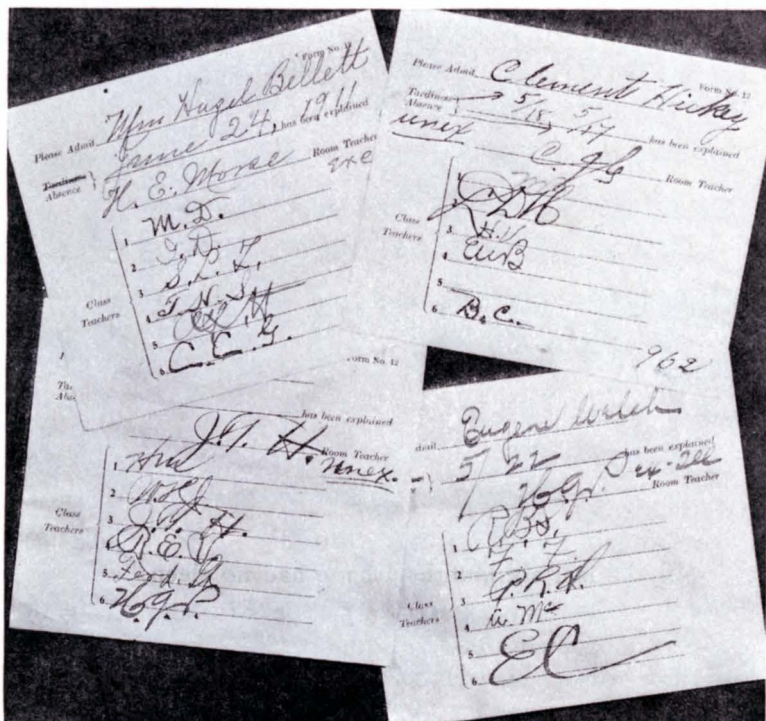 Form No. 12
Please Admit Wm Hugel Bellett
Tardiness
Absence } June 24, 1911 has been explained
H. E. Morse Room Teacher
exc
Class Teachers
1 M.D.
2 J.D.
3 S.L.L.
4 T.N.S.
5
6 C.C.G.
Form No. 12
Please Admit Clement Hickey
Tardiness
Absence 5/18 5/17 has been explained
unex C.J.G Room Teacher
Class Teachers
1
2 LDH
3 H.H.
4 EWB
5
6 B.C.
962
Form No. 12
has been explained
J.T. H. Room Teacher
unex.
Class Teachers
1
2
3 H.
4 R.E.P.
5
6 H.G.P.
dmit Eugene Welch
5/22 has been explained
H.G.P. Room Teacher
Class Teachers
1 R.B.S.
2 F. F.
3 P.R.H.
4 A. Mc
5
6 EC